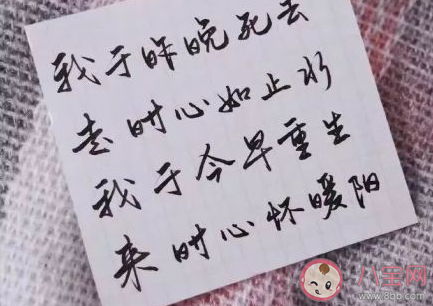 我于昨晚死去
走时心如止水
我于今早重生
来时心怀暖阳
八宝网
www.8bb.com